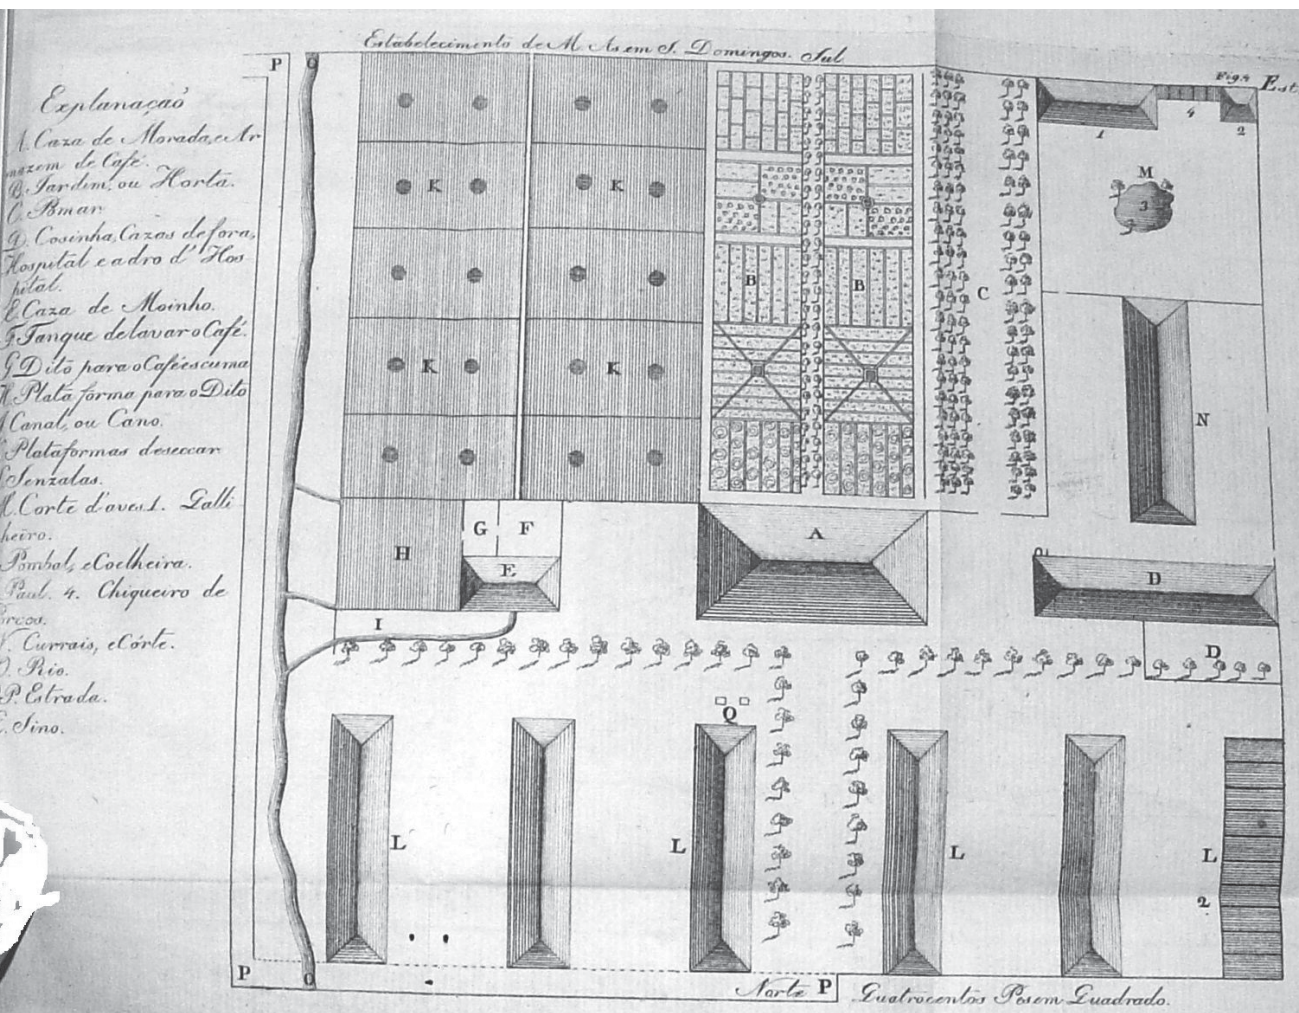 Estabelecimento de M. As em S. Domingos. Sul
Fig. 4 Est
Explanação
A. Caza de Morada, e Ar
mazem de Café.
B. Jardim, ou Horta.
C. Pomar
D. Cosinha, Cazas de fora,
Hospital e adro d'Hos
pital.
E. Caza de Moinho.
F. Tanque de lavar o Café.
G Ditõ para o Café escuma
H. Plata forma para o Dito
I Canal, ou Cano.
Plataformas de seccar
Senzalas.
M. Corte d'aves 1. Galli
nheiro.
Pombal, e Coelheira.
Paul. 4. Chiqueiro de
Porcos.
N. Currais, e Córte.
O. Rio.
P. Estrada.
Sino.
P O
1 4 2
M
3
K K
B B
C
K K
N
G F
H E
A
D
I
D
Q
L L L L
2
P O
Norte P Quatrocentos Pes em Quadrado.